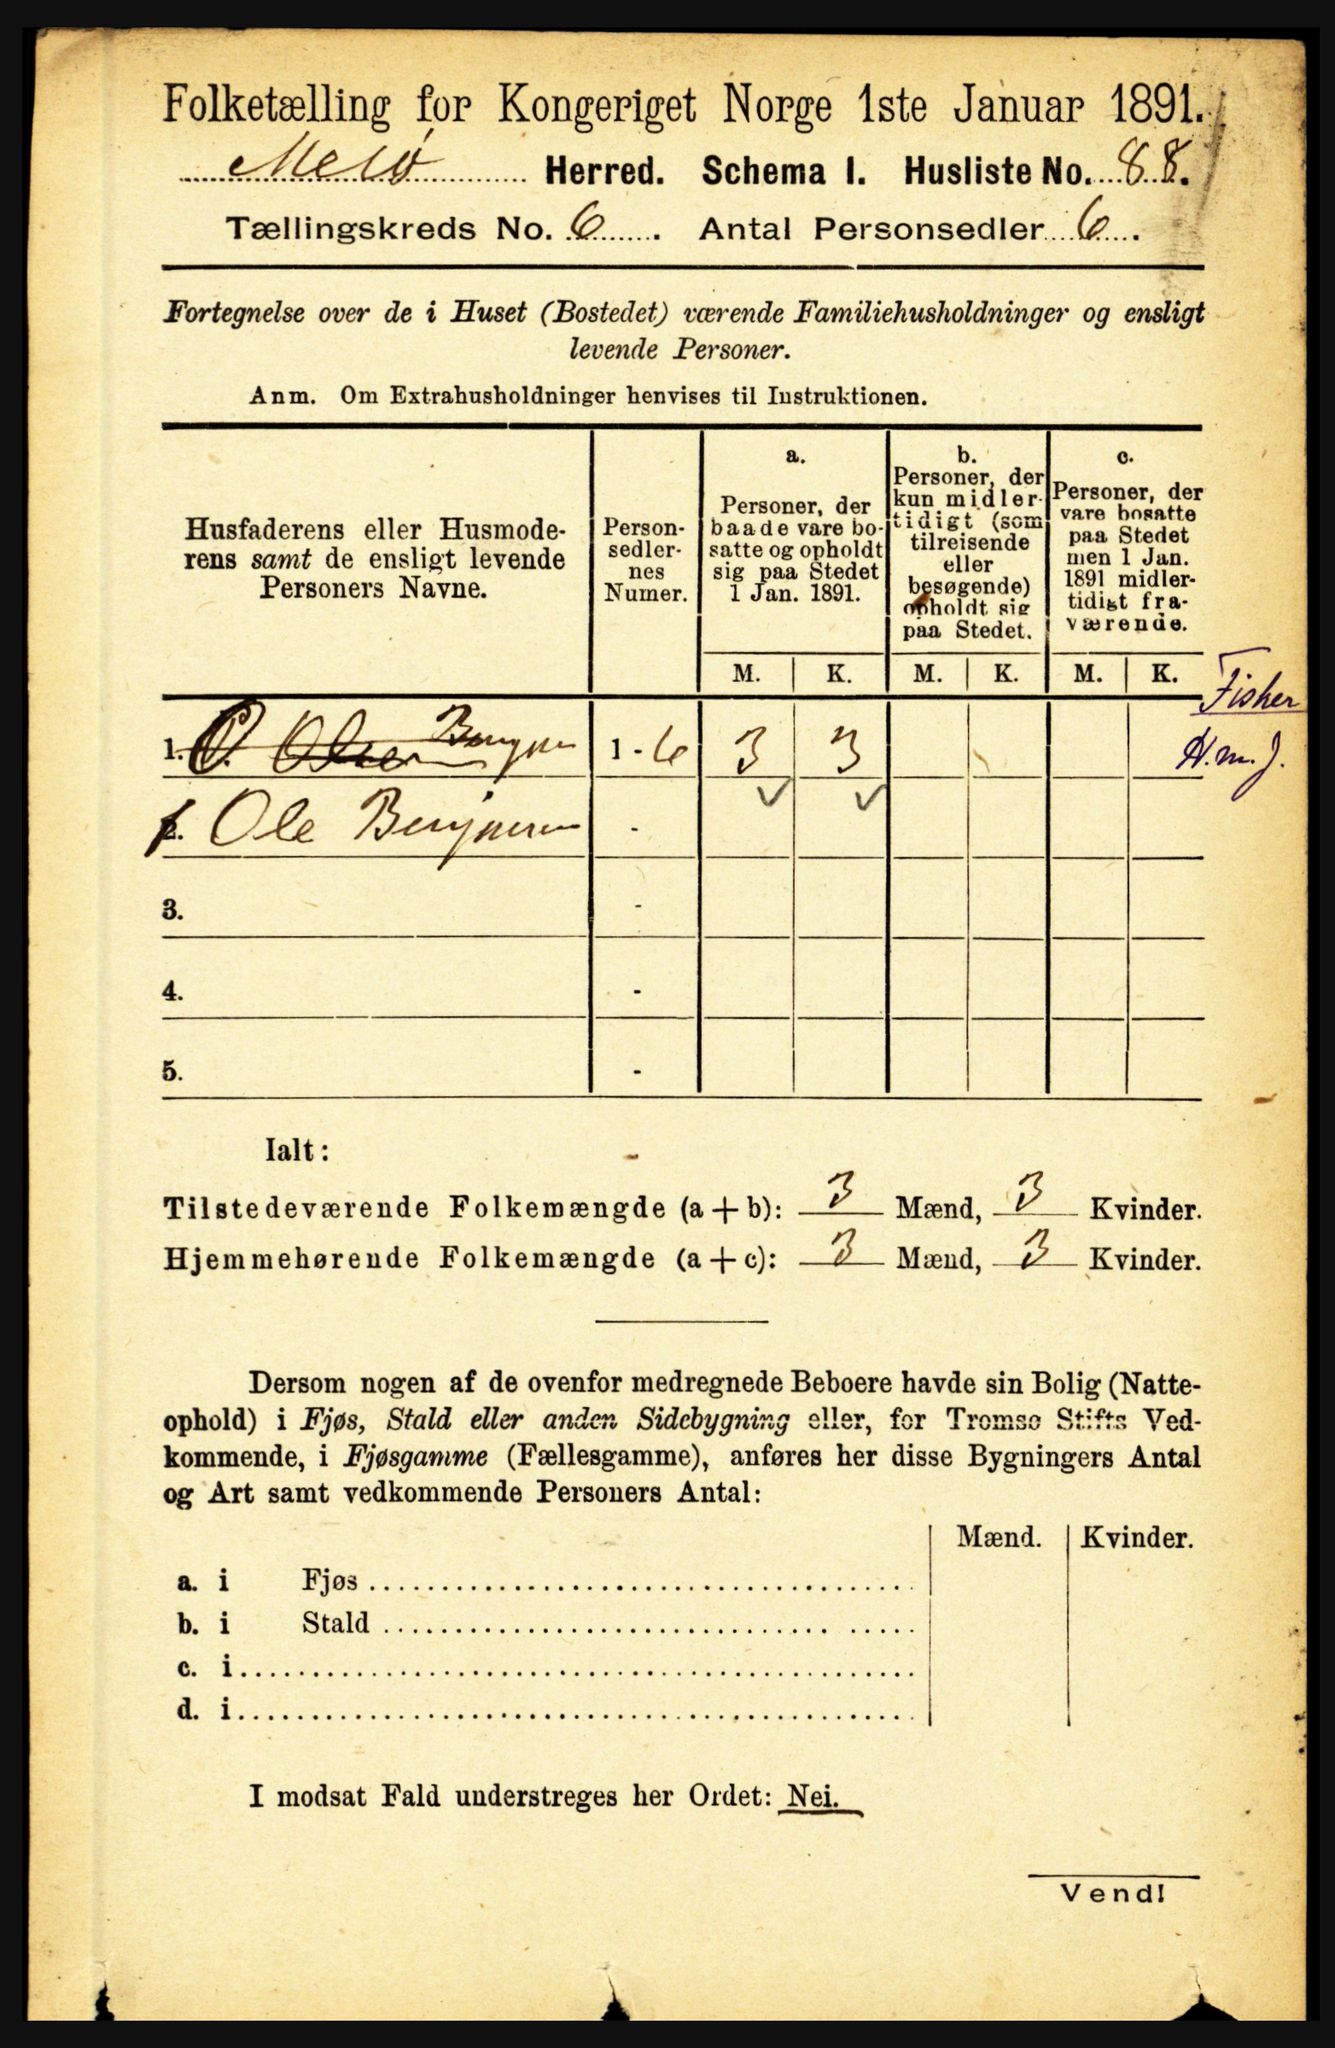 Folketælling for Kongeriget Norge 1ste Januar 1891.
Melø Herred. Schema I. Husliste No. 88.
Tællingskreds No. 6. Antal Personsedler 6.
Fortegnelse over de i Huset (Bostedet) værende Familiehusholdninger og ensligt
levende Personer.
Anm. Om Extrahusholdninger henvises til Instruktionen.
Husfaderens eller Husmode-
rens samt de ensligt levende
Personers Navne.
Person-
sedler-
nes
Numer.
a.
Personer, der
baade vare bo-
satte og opholdt
sig paa Stedet
1 Jan. 1891.
b.
Personer, der
kun midler-
tidigt (som
tilreisende
eller
besøgende)
opholdt sig
paa Stedet.
c.
Personer, der
vare bosatte
paa Stedet
men 1 Jan.
1891 midler-
tidigt fra-
værende.
M. K. M. K. M. K.
Fisker
1. Olsen 1 - 6 3 3
H.m.J.
2. Ole -
3. -
4. -
5. -
Ialt:
Tilstedeværende Folkemængde (a + b): 3 Mænd, 3 Kvinder.
Hjemmehørende Folkemængde (a + c): 3 Mænd, 3 Kvinder.
Dersom nogen af de ovenfor medregnede Beboere havde sin Bolig (Natte-
ophold) i Fjøs, Stald eller anden Sidebygning eller, for Tromsø Stifts Ved-
kommende, i Fjøsgamme (Fællesgamme), anføres her disse Bygningers Antal
og Art samt vedkommende Personers Antal:
Mænd. Kvinder.
a. i Fjøs
b. i Stald
c. i
d. i
I modsat Fald understreges her Ordet: Nei.
Vend!